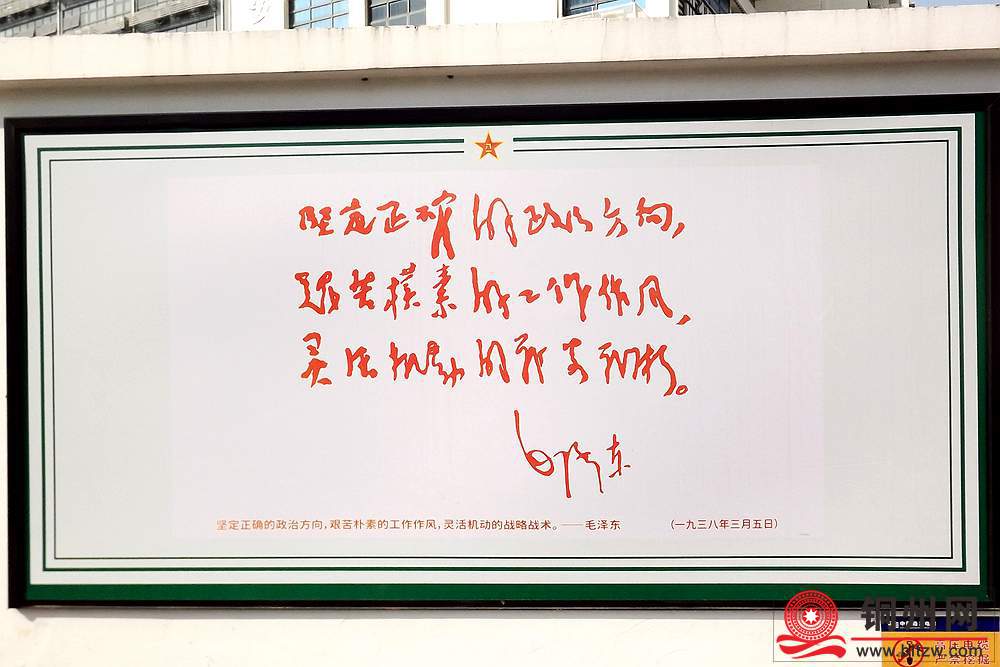 坚定正确的政治方向，
艰苦朴素的工作作风，
灵活机动的战略战术。
毛泽东
坚定正确的政治方向，艰苦朴素的工作作风，灵活机动的战略战术。——毛泽东 （一九三八年三月五日）
铜州网
www.bjtzw.com
严禁挖掘